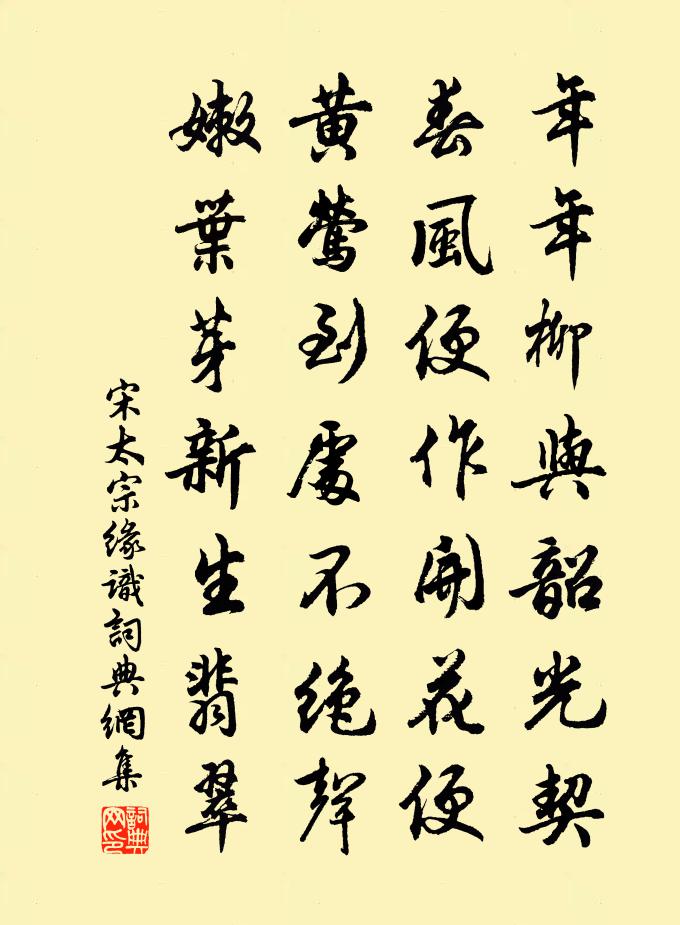 年年柳與韶光契
春風便作開花便
黃鶯到處不絕聲
嫩葉芽新生翡翠
宋太宗緣識詞典網集
詞典網印